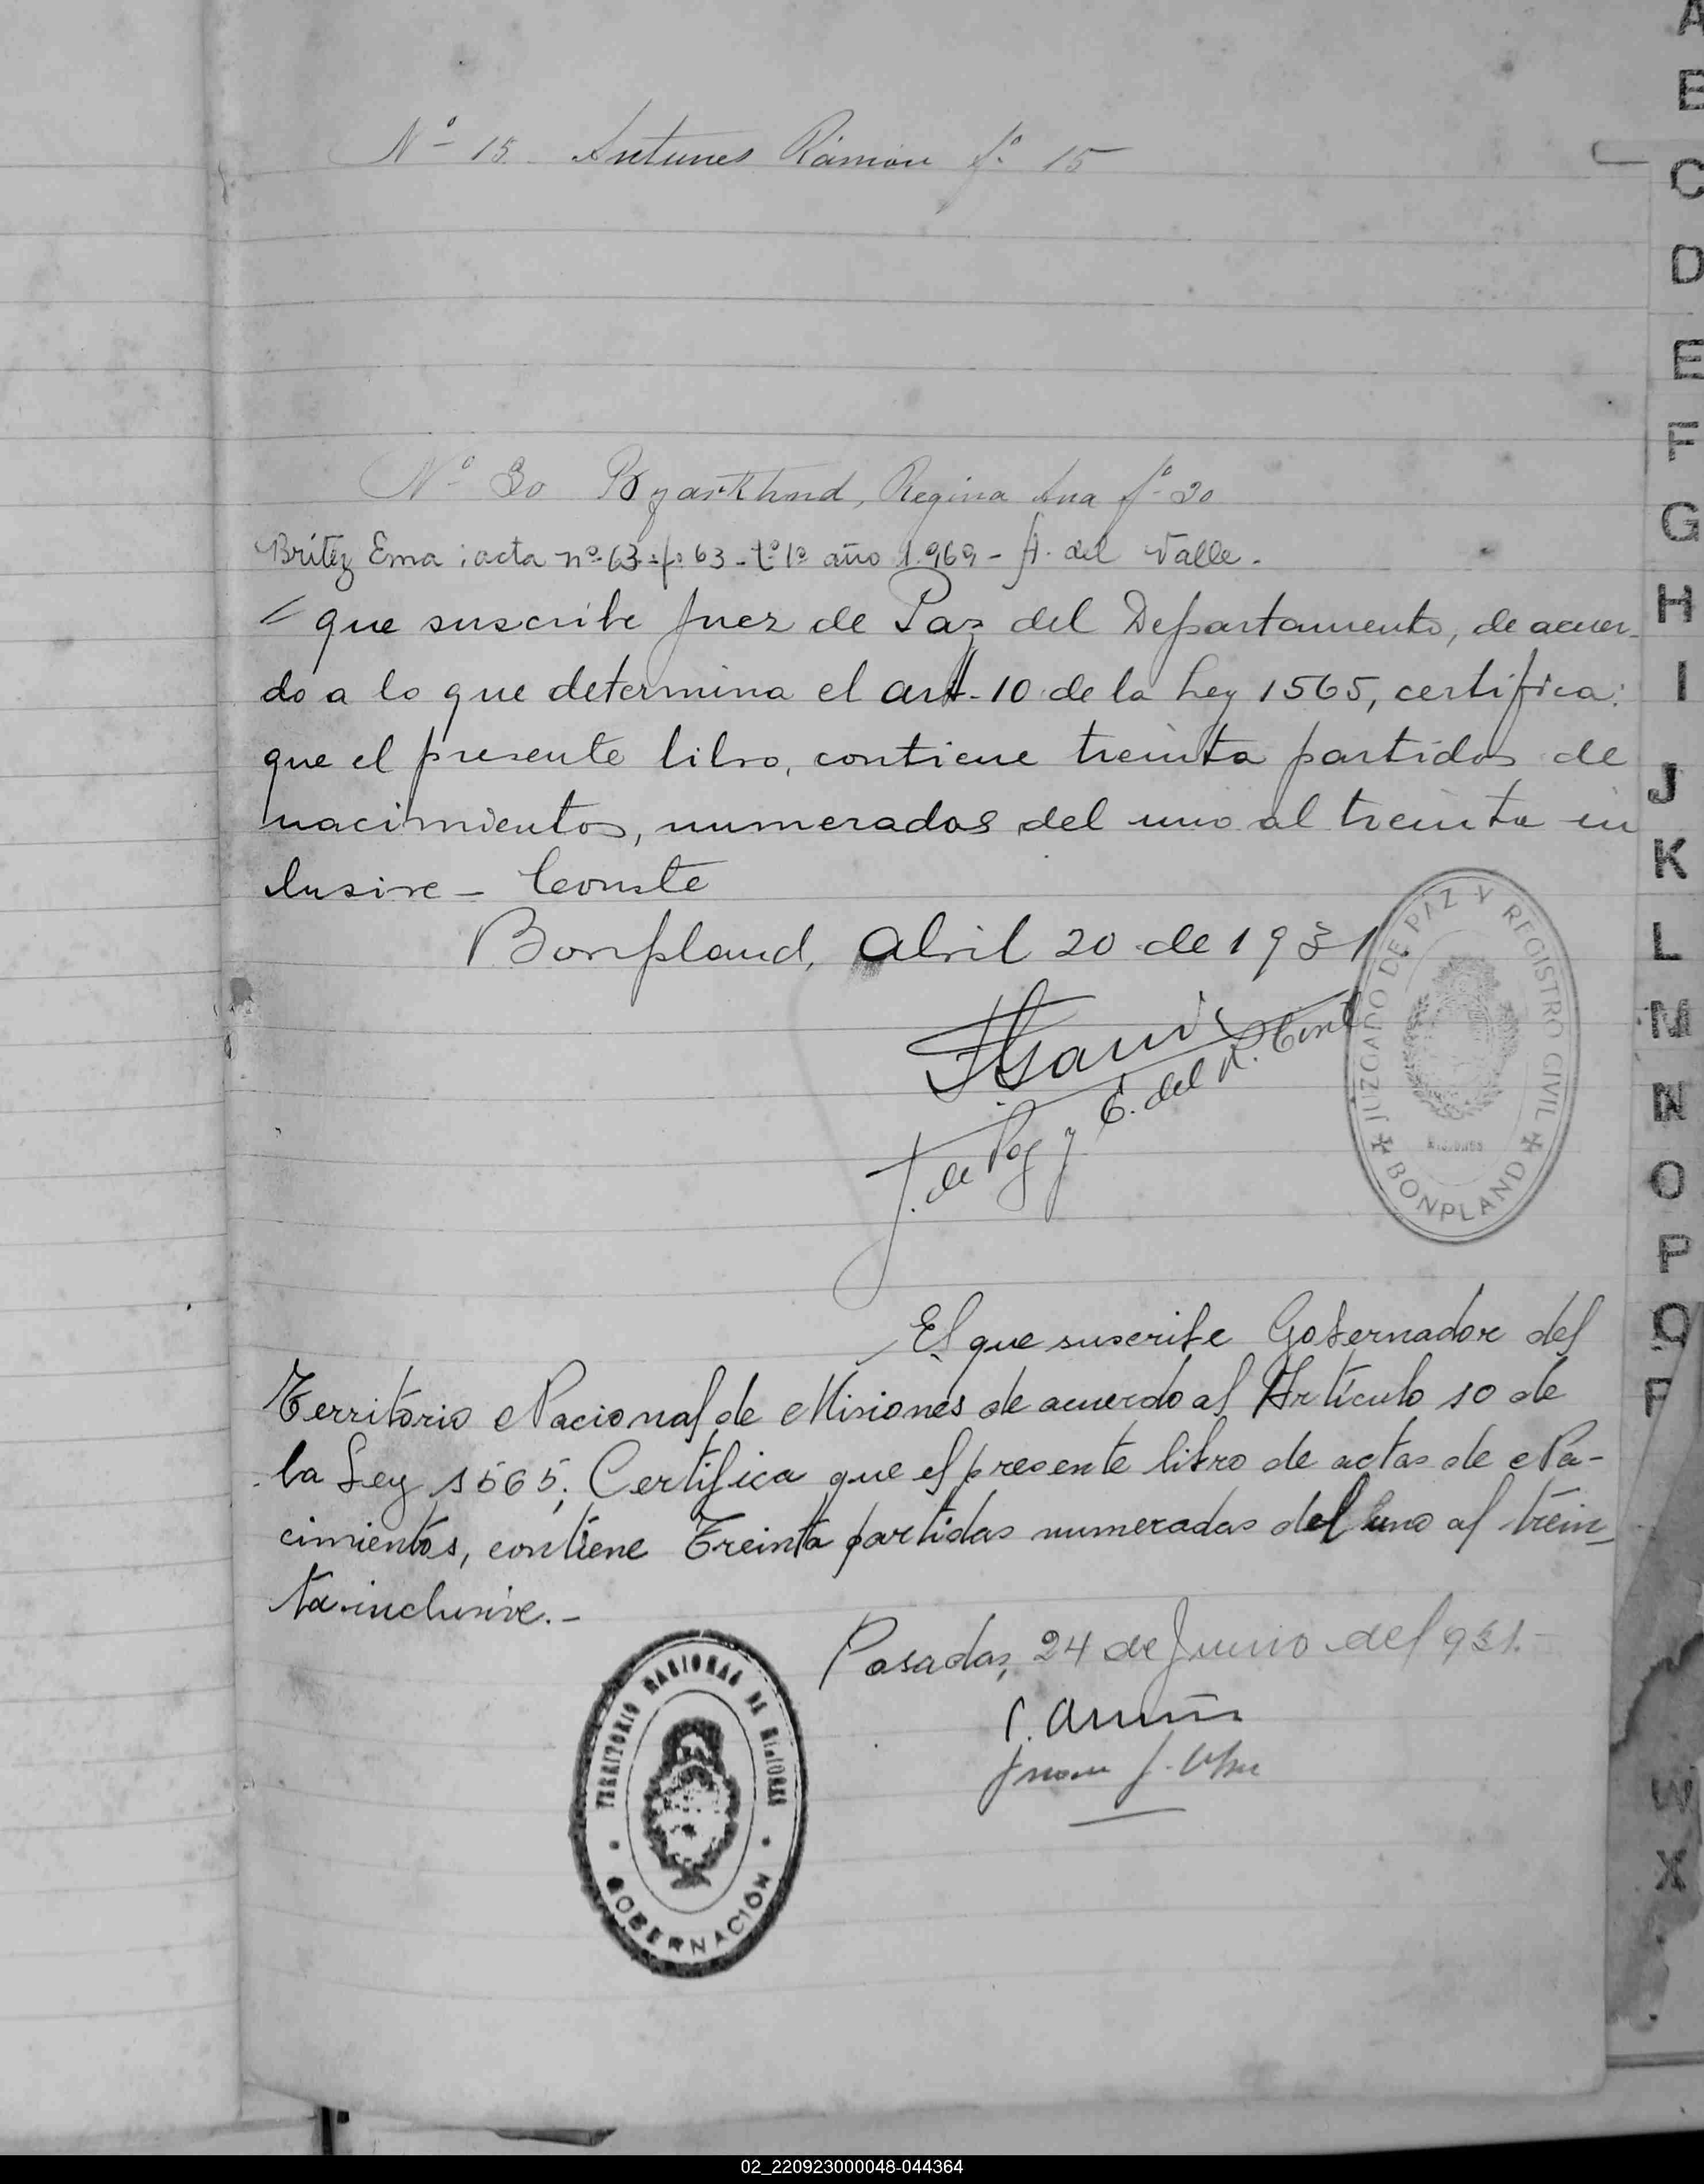 Nº 15. Antunes Ramón fº 15
Nº 30 Regina Ana fº 30
Britez Ema : acta nº 63 - fº 63 - tº 1º año 1.969 - A. del Valle.
que suscribe Juez de Paz del Departamento, de acuer-
do a lo que determina el art. 10 de la Ley 1565, certifica:
que el presente libro, contiene treinta partidas de
nacimientos, numeradas del uno al treinta in
clusive - Conste
Bonpland, Abril 20 de 1931
J. de Paz y E. del R. Civil
JUZGADO DE PAZ Y REGISTRO CIVIL
MISIONES
BONPLAND
El que suscribe Gobernador del
Territorio Nacional de Misiones de acuerdo al Artículo 10 de
la Ley 1565; Certifica que el presente libro de actas de Na-
cimientos, contiene Treinta partidas numeradas del uno al trein-
ta inclusive.-
Posadas, 24 de Junio del 931.-
TERRITORIO NACIONAL DE MISIONES
GOBERNACIÓN
A
B
C
D
E
F
G
H
I
J
K
L
M
N
O
P
Q
W
X
02_220923000048-044364